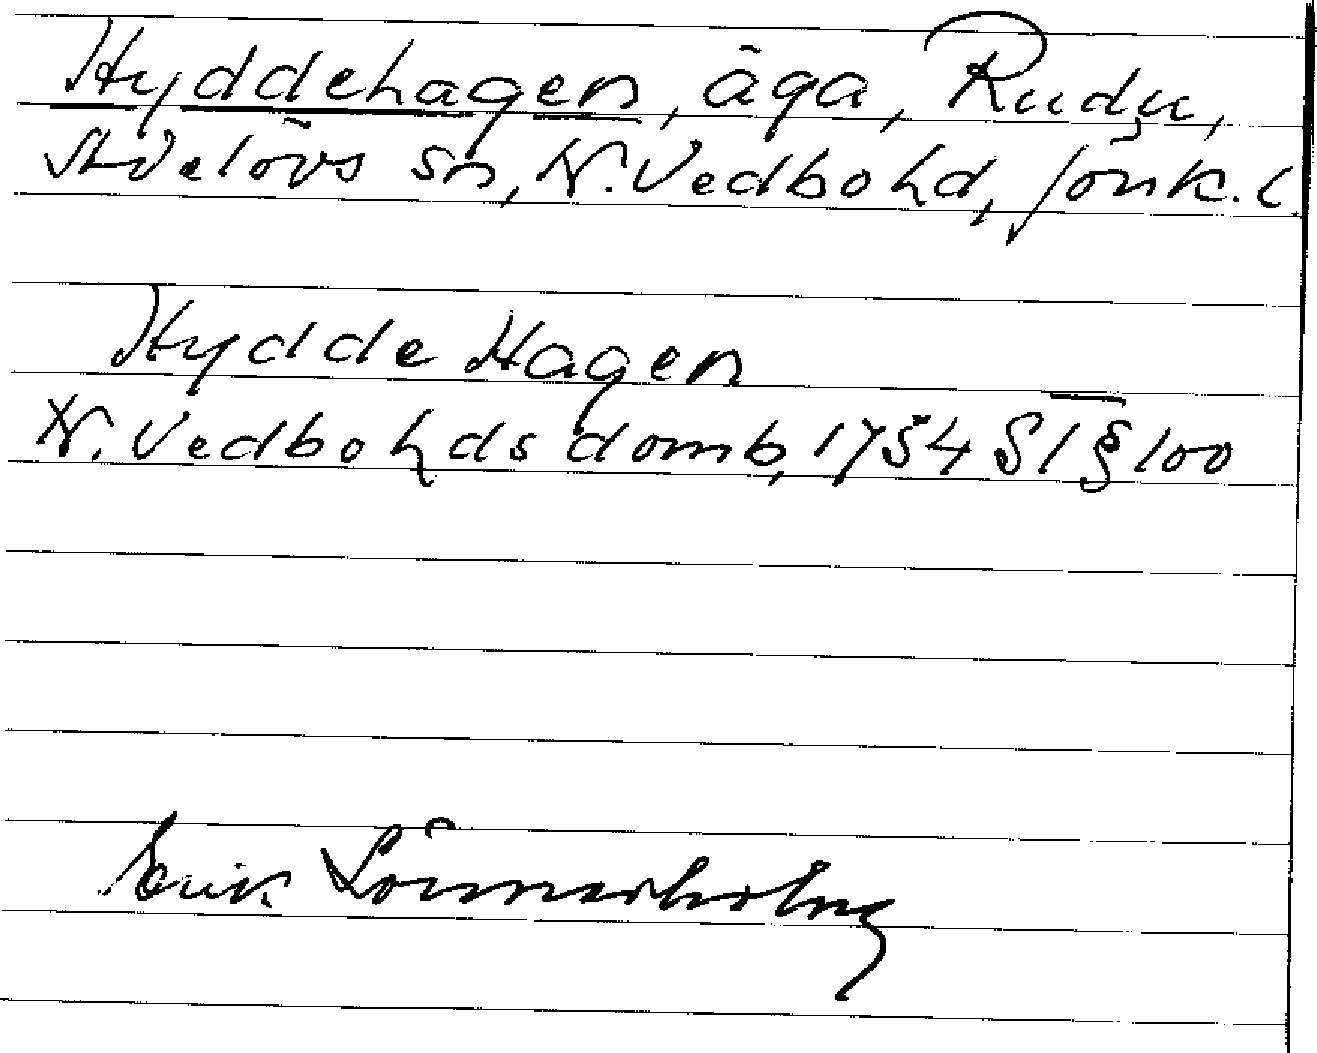 Hyddehagen, äga, Rudu,
Skdelövs sn, N. Vedbo hd, Jönk. l.
Hydde Hagen
N. Vedbo hds domb, 1754 S1 § 100
Erik Lönnerholm